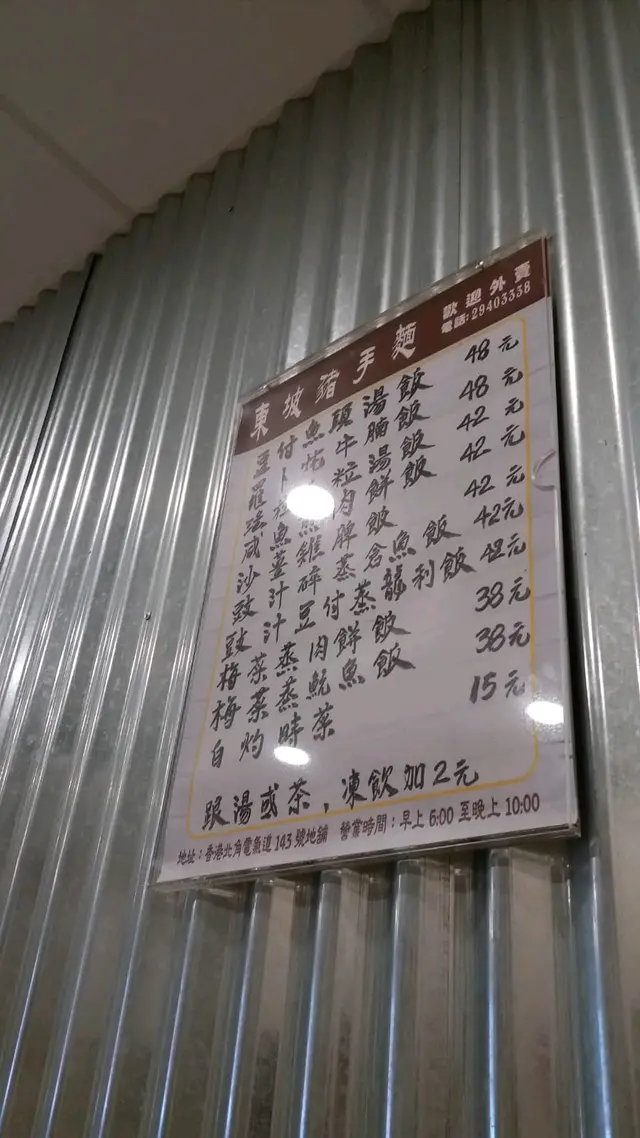 東坡豬手麵
歡迎外賣
電話:29403338
豆付魚頭湯飯 48元
羅卜炆牛腩飯 48元
柱粒湯飯 42元
咸魚蒸肉餅飯 42元
沙薑雞脾飯 42元
豉汁碎蒸倉魚飯 42元
豉汁豆付蒸龍利飯 42元
梅菜蒸肉餅飯 38元
梅菜蒸鯇魚飯 38元
白灼時菜 15元
跟湯或茶，凍飲加2元
地址：香港北角電氣道 143 號地舖 營業時間：早上 6:00 至晚上 10:00